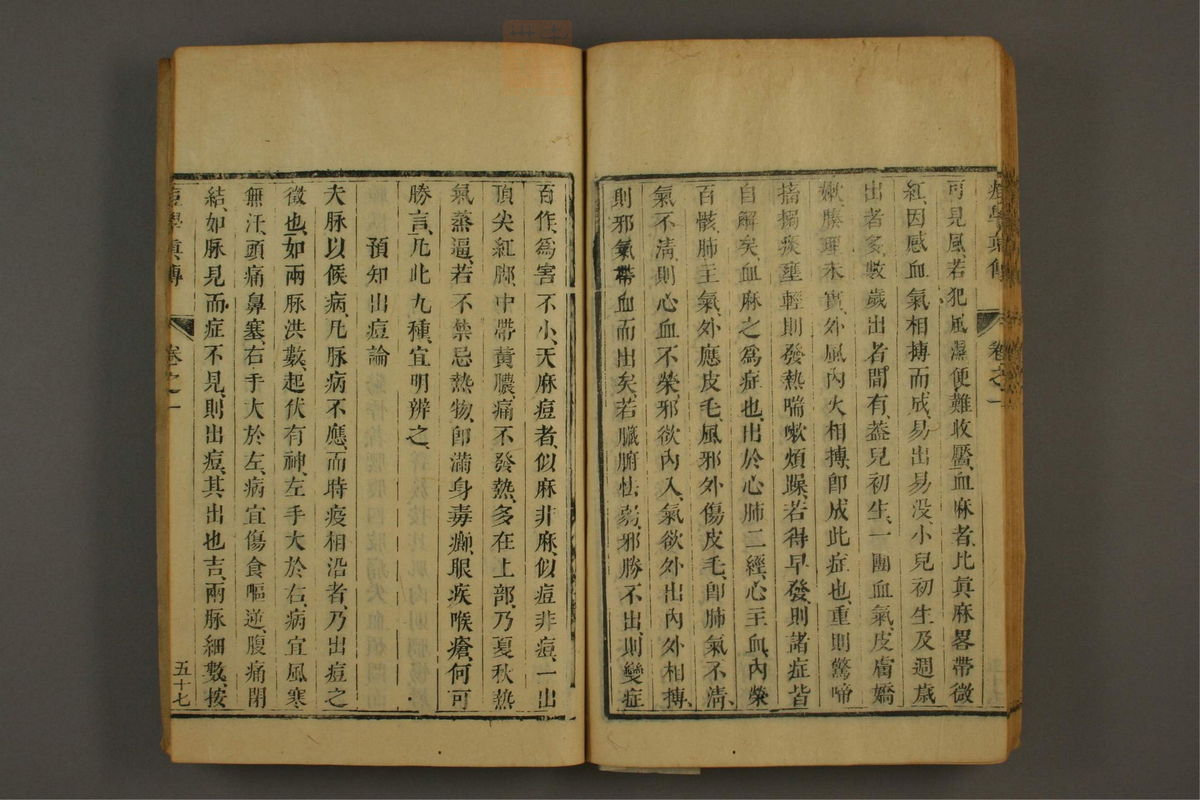 痘學眞傳 卷之一
可見風若犯風濕便難收靨血麻者比眞麻畧帶微
紅因感血氣相搏而成易出易没小兒初生及週歲
出者多數歲出者間有葢兒初生一團血氣皮膚嬌
嫩腠理未實外風內火相搏卽成此症也重則驚啼
搐搦痰壅輕則發熱喘嗽煩躁若得早發則諸症皆
自解矣血麻之爲症也出於心肺二經心主血內榮
百骸肺主氣外應皮毛風邪外傷皮毛卽肺氣不淸
氣不淸則心血不榮邪欲內入氣欲外出內外相搏
則邪氣帶血而出矣若臟腑怯弱邪勝不出則變症
百作爲害不小天麻痘者似麻非麻似痘非痘一出
頂尖紅脚中帶黃膿痛不發熱多在上部乃夏秋熱
氣蒸逼若不禁忌熱物卽滿身毒癩眼疾喉瘡何可
勝言凡此九種宜明辨之
預知出痘論
夫脉以候病凡脉病不應而時疫相沿者乃出痘之
徵也如兩脉洪數起伏有神左手大於右病宜風寒
無汗頭痛鼻塞右手大於左病宜傷食嘔逆腹痛閉
結如脉見而症不見則出痘其出也吉兩脉細數按
痘學眞傳 卷之一 五十七